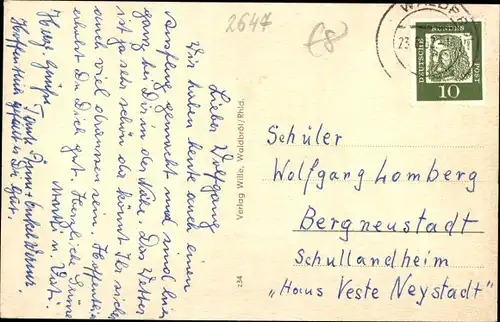 2647
€8
WALDBR
23.
DEUTSCHE
BUNDES
POST
10
Lieber Wolfgang
Wir haben heute auch einen
Ausflug gemacht und sind hier
ganz bei Dir in der Nähe. Das Wetter
ist ja sehr schön da könnt Ihr sicher
auch viel draussen sein. Hoffentlich
erholst Du Dich gut. Herzliche Grüsse
Mutti u. Vati.
Herzl. Grüße Tante
Hoffentlich gefällt es Dir gut.
Verlag Wille, Waldbröl/Rhld.
234
Schüler
Wolfgang Lomberg
Bergneustadt
Schullandheim
„Haus Veste Neystadt"